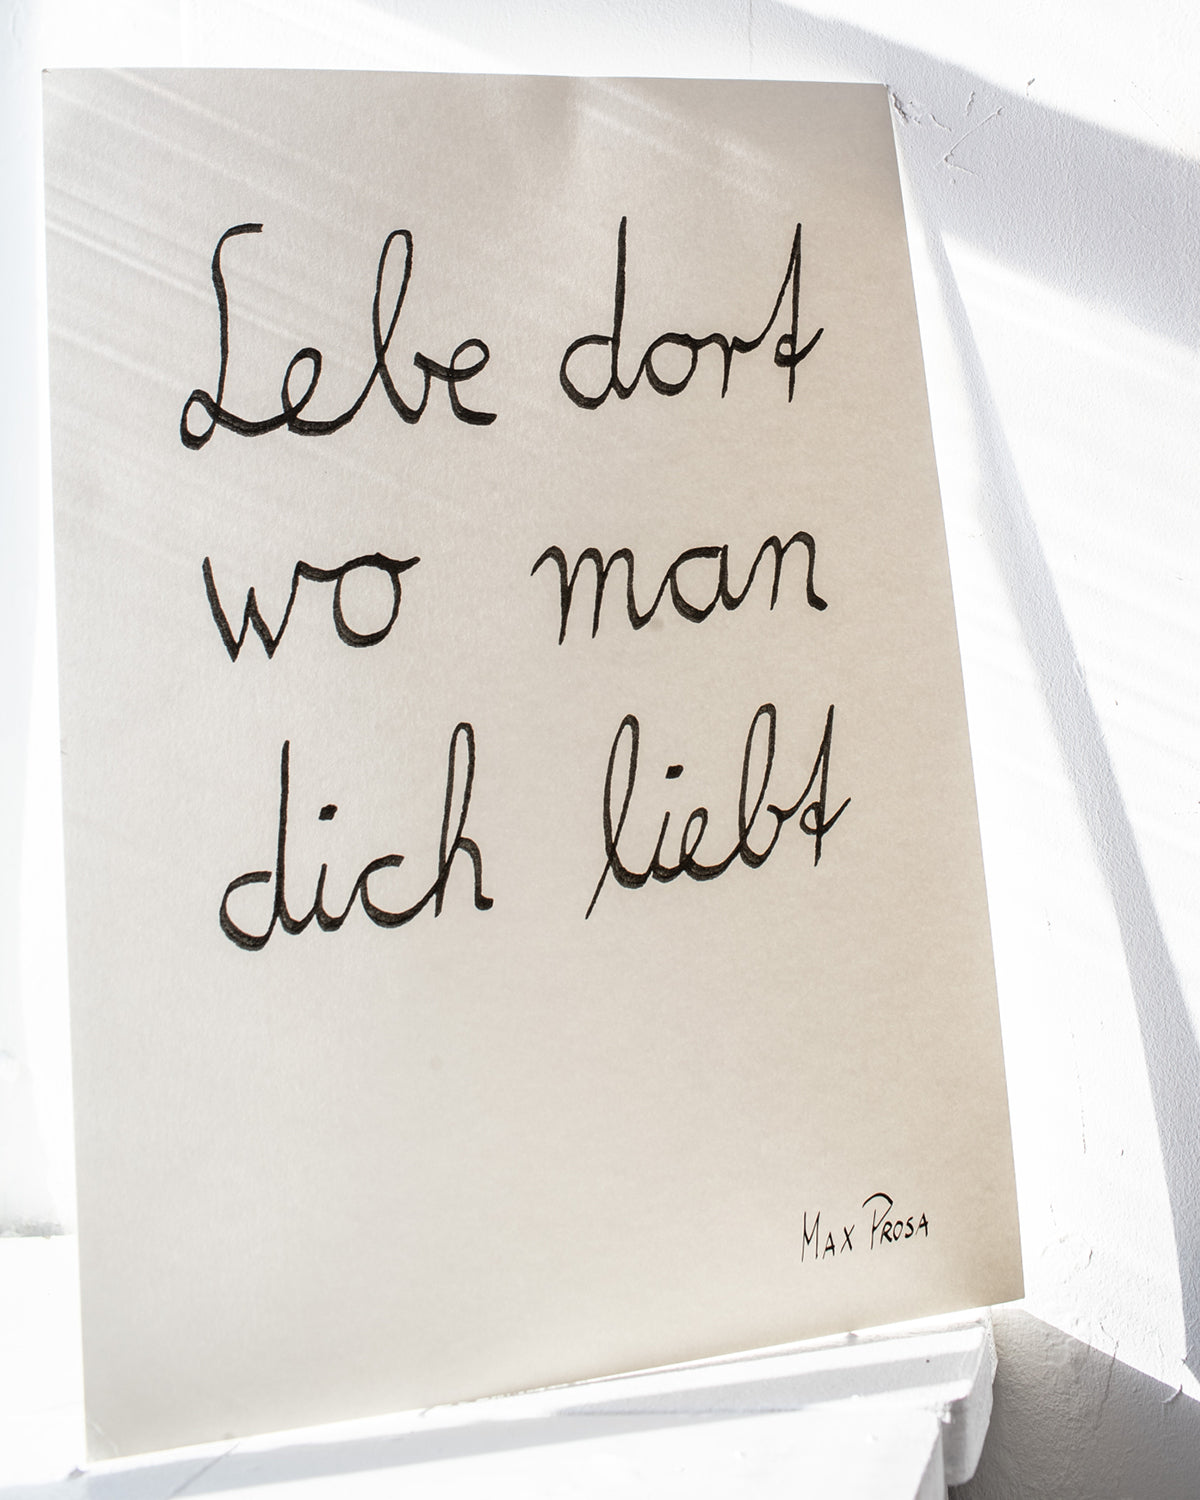 Lebe dort
wo man
dich liebt
MAX PROSA